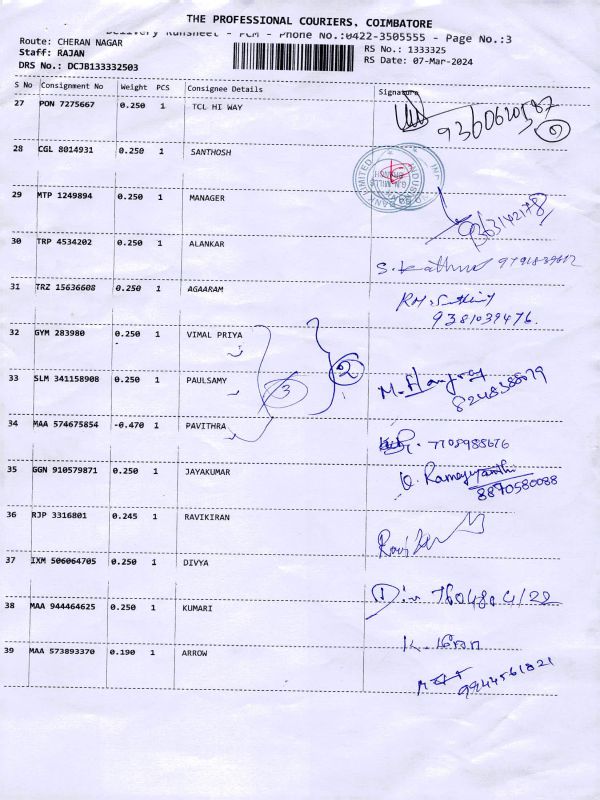 THE PROFESSIONAL COURIERS, COIMBATORE
Delivery Runsheet - PCM - Phone No.:0422-3505555 - Page No.:3
Route: CHERAN NAGAR
RS No.: 1333325
Staff: RAJAN
RS Date: 07-Mar-2024
DRS No.: DCJB133332503
S No Consignment No Weight PCS Consignee Details Signature
27 PON 7275667 0.250 1 TCL HI WAY
9360620587
28 CGL 8014931 0.250 1 SANTHOSH
29 MTP 1249894 0.250 1 MANAGER
30 TRP 4534202 0.250 1 ALANKAR
31 TRZ 15636608 0.250 1 AGAARAM
9381039476.
32 GYM 283980 0.250 1 VIMAL PRIYA
2
33 SLM 341158908 0.250 1 PAULSAMY
3
8248388079
34 MAA 574675854 -0.470 1 PAVITHRA
7708988676
35 GGN 910579871 0.250 1 JAYAKUMAR
8870580088
36 RJP 3316801 0.245 1 RAVIKIRAN
37 IXM 506064705 0.250 1 DIVYA
38 MAA 944464625 0.250 1 KUMARI
39 MAA 573893370 0.190 1 ARROW
9944561821